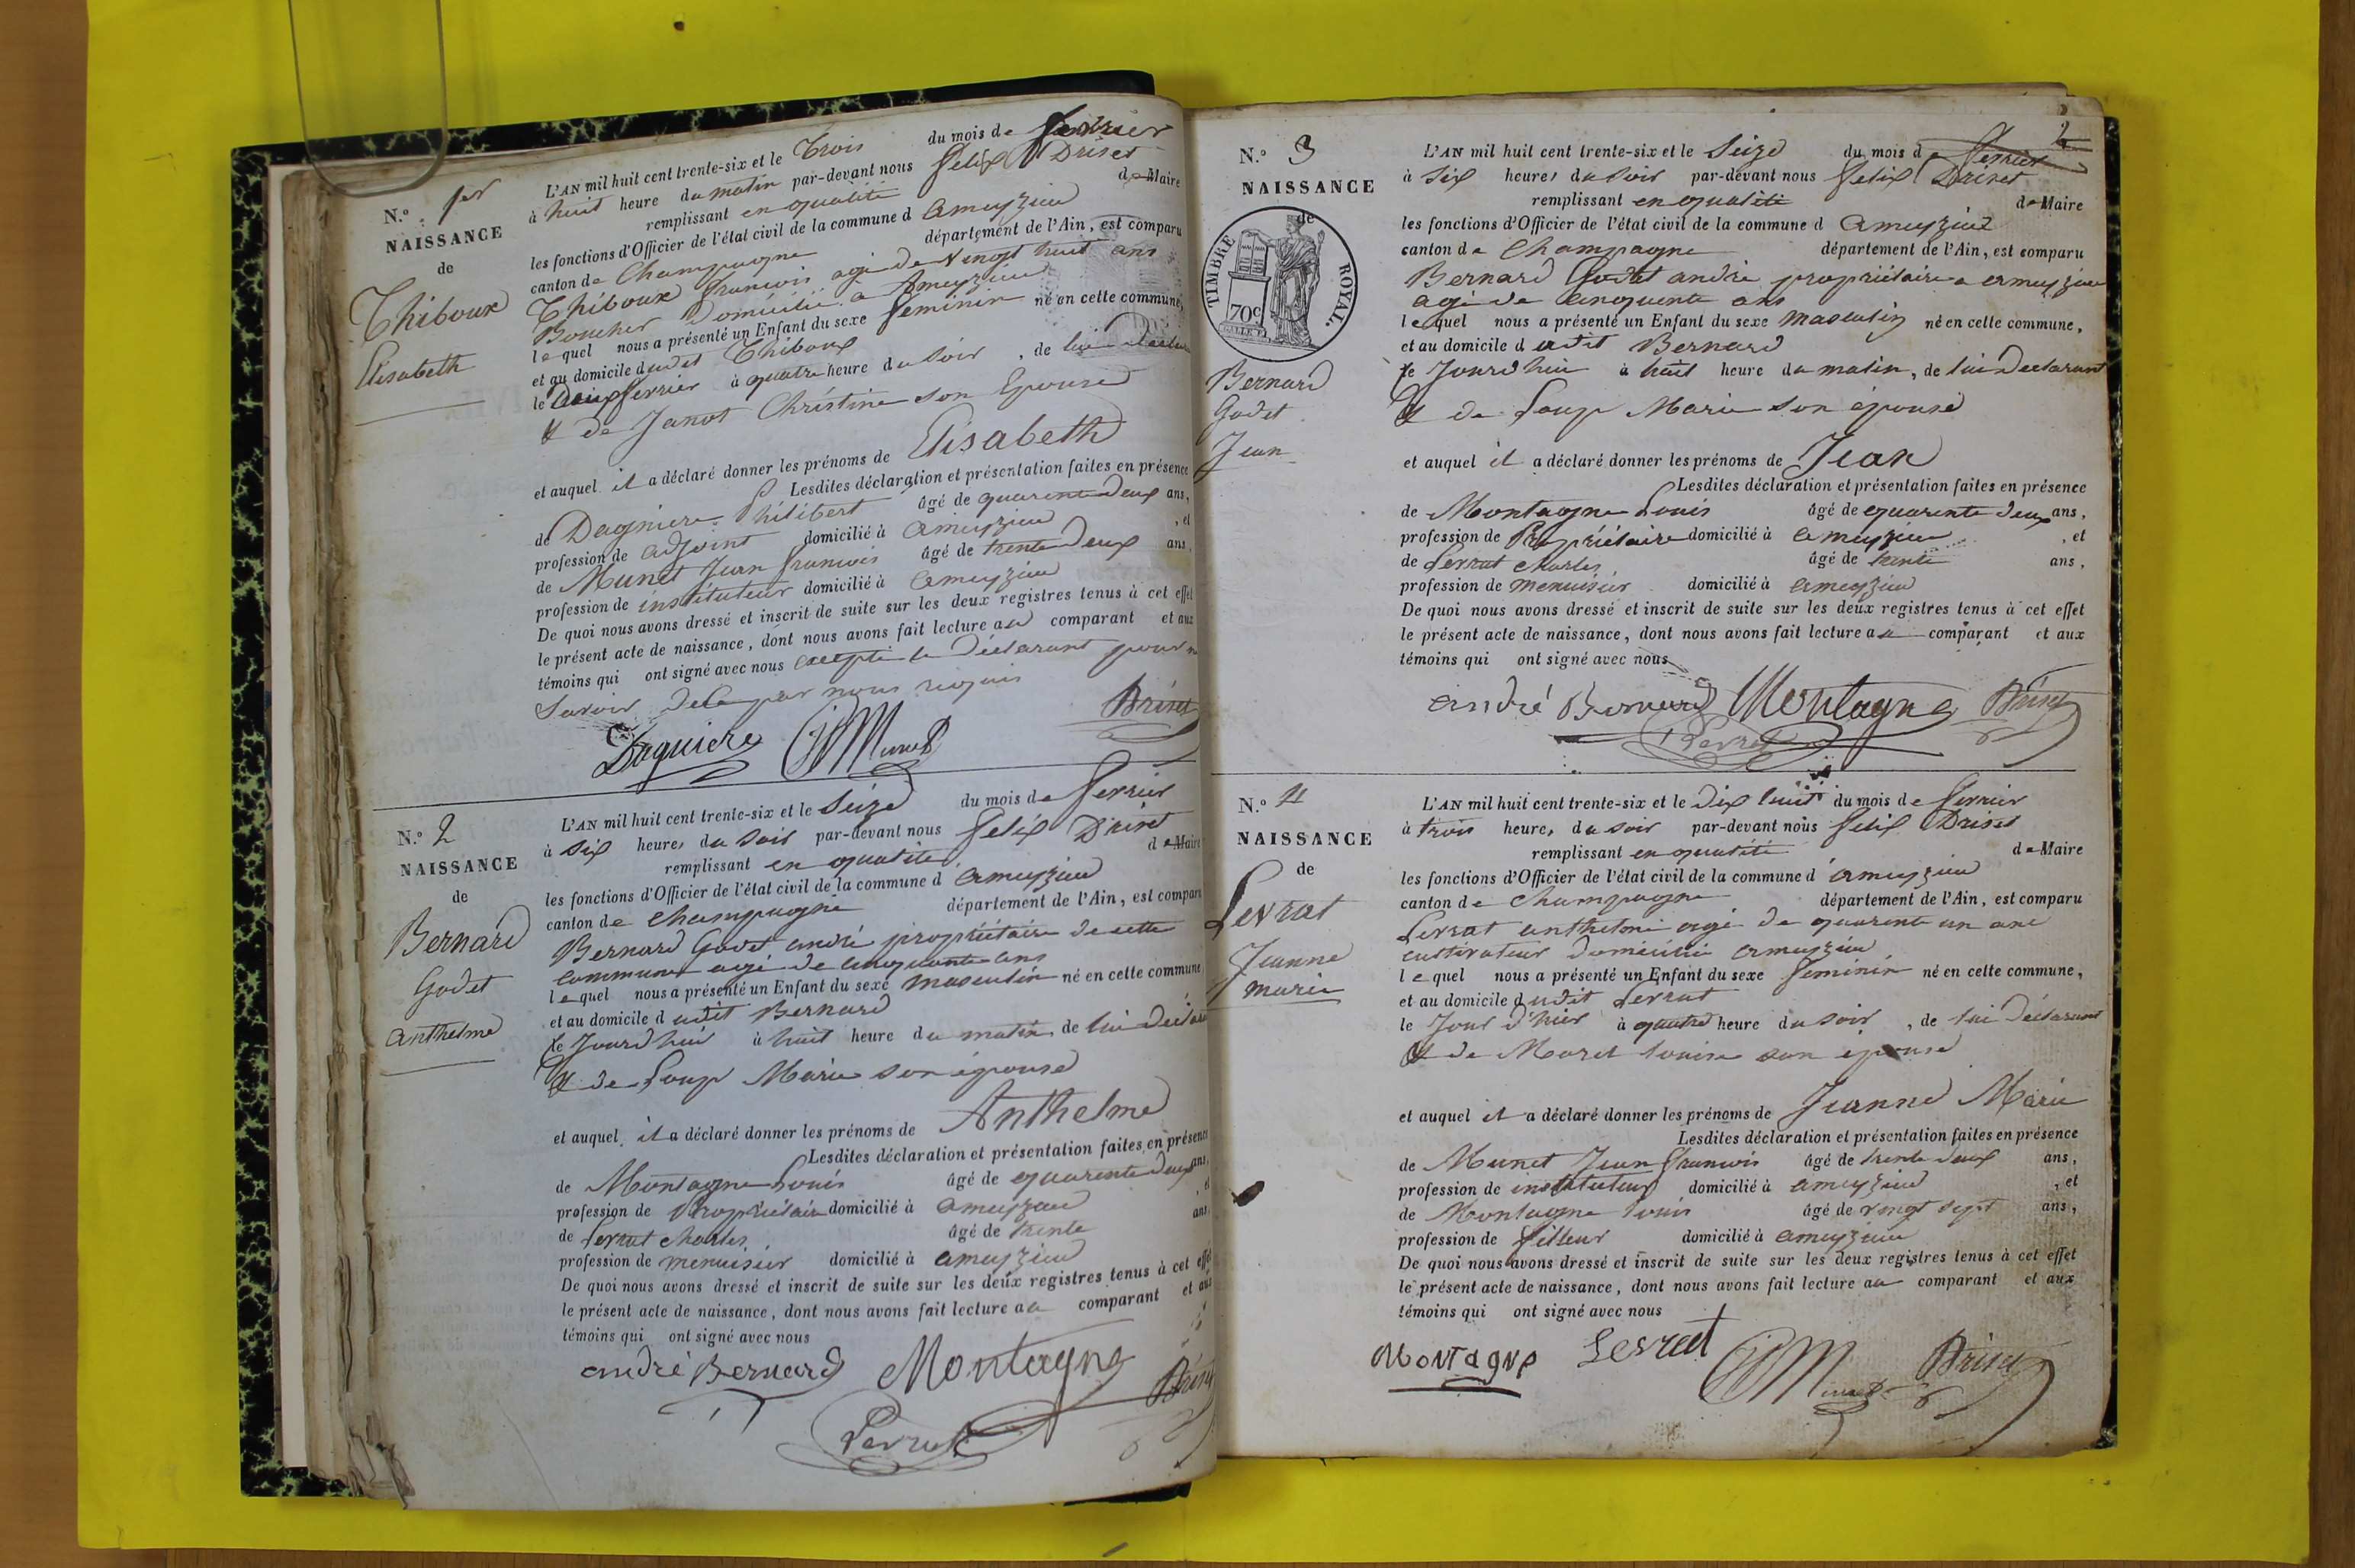 N.º 1er
NAISSANCE
de
Thiboux
Elisabeth
L'AN mil huit cent trente-six et le Trois du mois de fevrier
à huit heure du matin par-devant nous felix Briset
remplissant en qualité de Maire
les fonctions d'Officier de l'état civil de la commune d ameyzieu
canton de Champagne département de l'Ain, est comparu
Thiboux francois agé de vingt huit ans
Boucher Domicilié a Ameyzieu
lequel nous a présenté un Enfant du sexe feminin né en cette commune,
et au domicile dudit Thiboux
le Deux fevrier à quatre heure du soir, de lui
& de Janot Christine son Epouse
et auquel il a déclaré donner les prénoms de Elisabeth
Lesdites déclaration et présentation faites en présence
de Dagniere Philibert âgé de quarente Deux ans,
profession de adjoint domicilié à ameyzieu, et
de Munet Jean francois âgé de trente Deux ans,
profession de instituteur domicilié à ameyzieu
De quoi nous avons dressé et inscrit de suite sur les deux registres tenus à cet effet
le présent acte de naissance, dont nous avons fait lecture au comparant et aux
témoins qui ont signé avec nous excepté le Déclarant pour ne
Savoir de ce par nous requis
Briset
Dagniere Munet
N.º 2
NAISSANCE
de
Bernard
Godet
anthelme
L'AN mil huit cent trente-six et le Seize du mois de fevrier
à six heures du soir par-devant nous felix Briset
remplissant en qualité de Maire
les fonctions d'Officier de l'état civil de la commune d ameyzieu
canton de Champagne département de l'Ain, est comparu
Bernard Godet andré propriétaire de cette
commune agé de cinquante ans
lequel nous a présenté un Enfant du sexe masculin né en cette commune
et au domicile dudit Bernard
le Jourd'hui à huit heure du matin, de lui
& de Loup Marie son épouse
et auquel il a déclaré donner les prénoms de Anthelme
Lesdites déclaration et présentation faites en présence
de Montagne Louis âgé de quarente deux ans,
profession de Propriétaire domicilié à ameyzieu, et
de Levrat charles âgé de trente ans,
profession de menuisier domicilié à ameyzieu
De quoi nous avons dressé et inscrit de suite sur les deux registres tenus à cet effet
le présent acte de naissance, dont nous avons fait lecture au comparant et aux
témoins qui ont signé avec nous
andré Bernard Montagne Briset
Levrat
2
N.º 3
NAISSANCE
de
TIMBRE ROYAL.
70c
Bernard
Godet
Jean
L'AN mil huit cent trente-six et le Seize du mois de fevrier
à six heures du soir par-devant nous felix Briset
remplissant en qualité de Maire
les fonctions d'Officier de l'état civil de la commune d ameyzieu
canton de Champagne département de l'Ain, est comparu
Bernard Godet andré propriétaire a ameyzieu
agé de cinquente ans
lequel nous a présenté un Enfant du sexe masculin né en cette commune,
et au domicile dudit Bernard
le Jourd'hui à huit heure du matin, de lui Declarant
& de Loup Marie son épouse
et auquel il a déclaré donner les prénoms de Jean
Lesdites déclaration et présentation faites en présence
de Montagne Louis âgé de quarente deux ans,
profession de Propriétaire domicilié à ameyzieu, et
de Levrat charles âgé de trente ans,
profession de menuisier domicilié à ameyzieu
De quoi nous avons dressé et inscrit de suite sur les deux registres tenus à cet effet
le présent acte de naissance, dont nous avons fait lecture au comparant et aux
témoins qui ont signé avec nous
andré Bernard Montagne Briset
Levrat
N.º 4
NAISSANCE
de
Levrat
Jeanne
marie
L'AN mil huit cent trente-six et le Dix huit du mois de fevrier
à trois heures du soir par-devant nous felix Briset
remplissant en qualité de Maire
les fonctions d'Officier de l'état civil de la commune d ameyzieu
canton de Champagne département de l'Ain, est comparu
Levrat anthelme agé de quarente un ans
cultivateur domicilié ameyzieu
lequel nous a présenté un Enfant du sexe feminin né en cette commune,
et au domicile dudit Levrat
le Jour d'hier à quatre heure du soir, de lui Déclarant
& de Moret louise son épouse
et auquel il a déclaré donner les prénoms de Jeanne Marie
Lesdites déclaration et présentation faites en présence
de Munet Jean francois âgé de trente deux ans,
profession de instituteur domicilié à ameyzieu, et
de Montagne louis âgé de vingt sept ans,
profession de domicilié à ameyzieu
De quoi nous avons dressé et inscrit de suite sur les deux registres tenus à cet effet
le présent acte de naissance, dont nous avons fait lecture au comparant et aux
témoins qui ont signé avec nous
Montagne Levrat Munet Briset